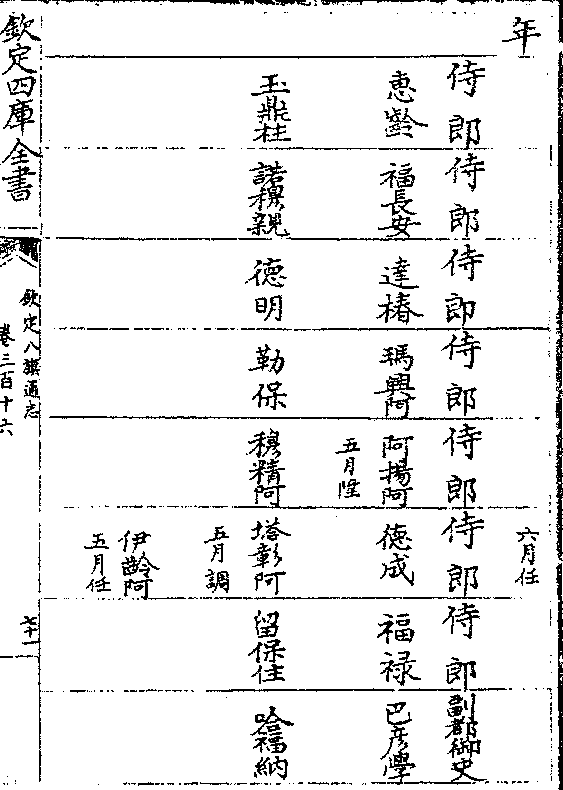 年
侍郎
惠齡
玉鼎柱
侍郎
福長安
諾穆親
侍郎
達椿
德明
侍郎
瑪興阿
勒保
侍郎
阿揚阿
五月陞
穆精阿
六月任
侍郎
德成
塔彰阿
五月調
伊齡阿
五月任
侍郎
福祿
留保住
副都御史
巴彥學
哈福納
欽定四庫全書
欽定八旗通志
卷三百十六